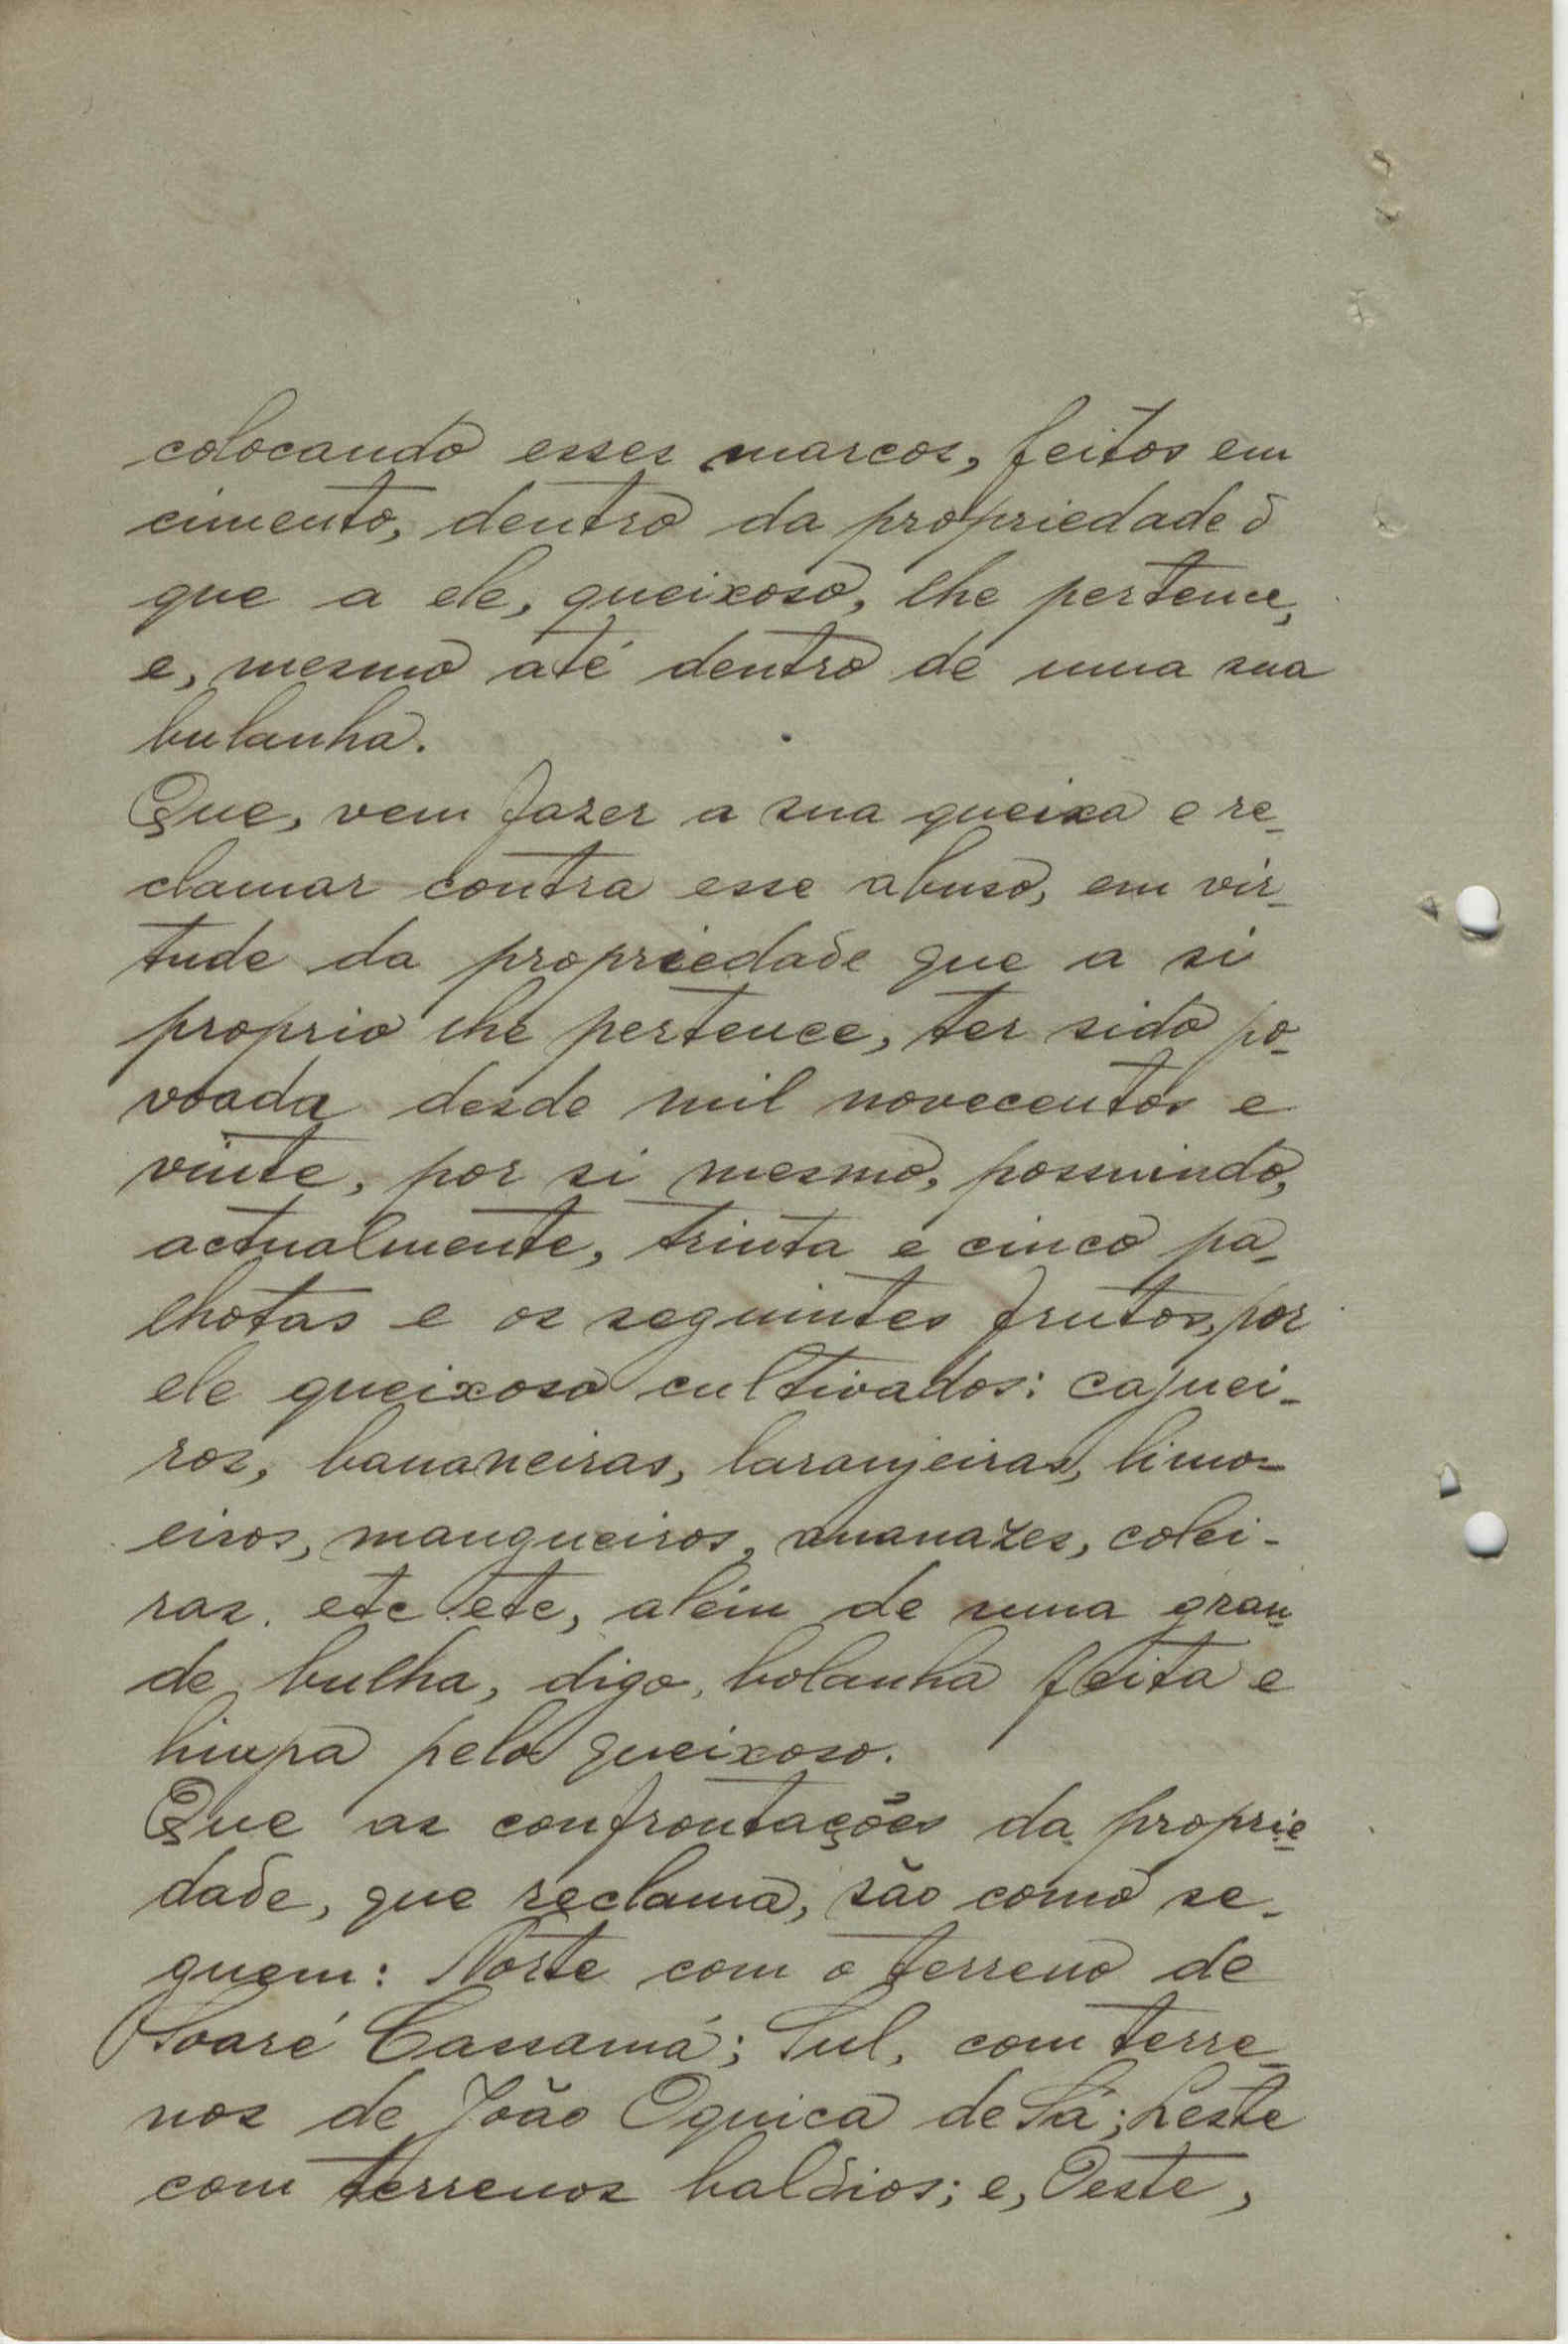 colocando esses marcos, feitos em
cimento, dentro da propriedade
que a ele, queixoso, lhe pertence,
e, mesmo até dentro de uma sua
bulanha.
Que, vem fazer a sua queixa e re-
clamar contra esse abuso, em vir-
tude da propriedade que a si
proprio lhe pertence, ter sido po-
voada desde mil novecentos e
vinte, por si mesmo, possuindo,
actualmente, trinta e cinco pa-
lhotas e os seguintes frutos, por
ele queixoso cultivados: cajuei-
ros, bananeiras, laranjeiras, limo-
eiros, mangueiros, ananazes, colei-
ras. etc etc, além de uma gran-
de bulha, digo, bolanha feita e
limpa pelo queixoso.
Que as confrontações da proprie
dade, que reclama, são como se-
guem: Norte com o terreno de
Soaré Cassamá; Sul, com terre-
nos de João Oquica de Sá; Leste
com terrenos baldios; e, Oeste,